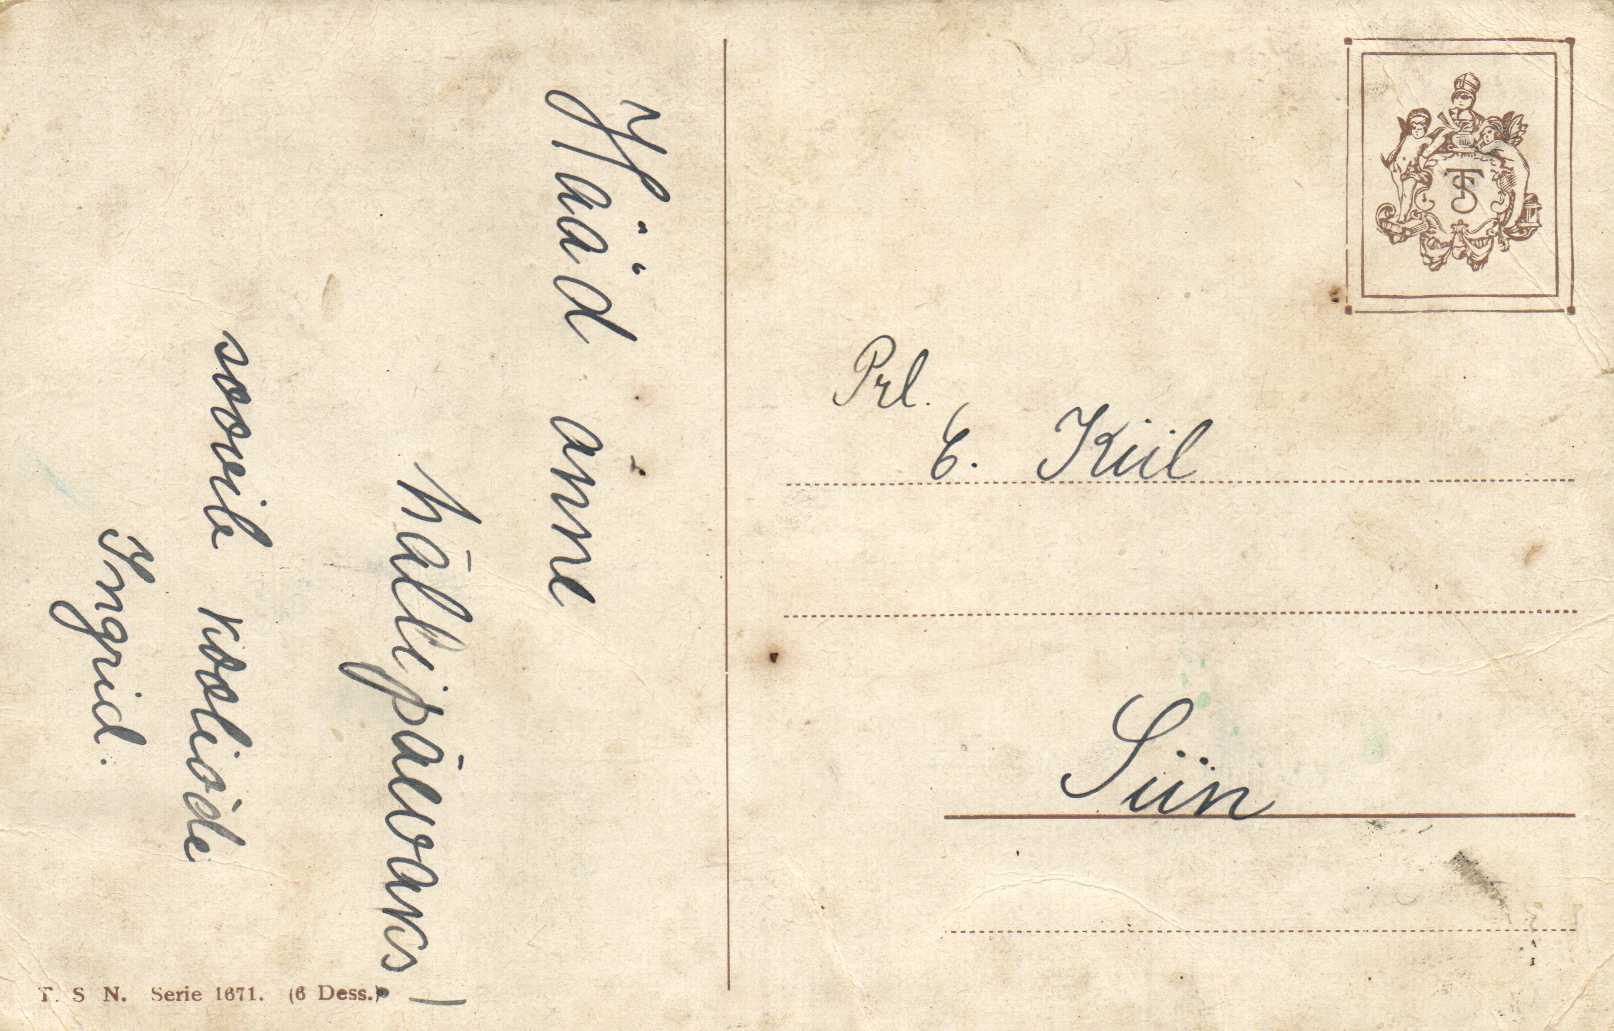 Hääd õnne
hällipäewaks!
soovib kooliõde
Ingrid.
Prl.
E. Kiil
Siin
T. S N. Serie 1671. (6 Dess.)
TS